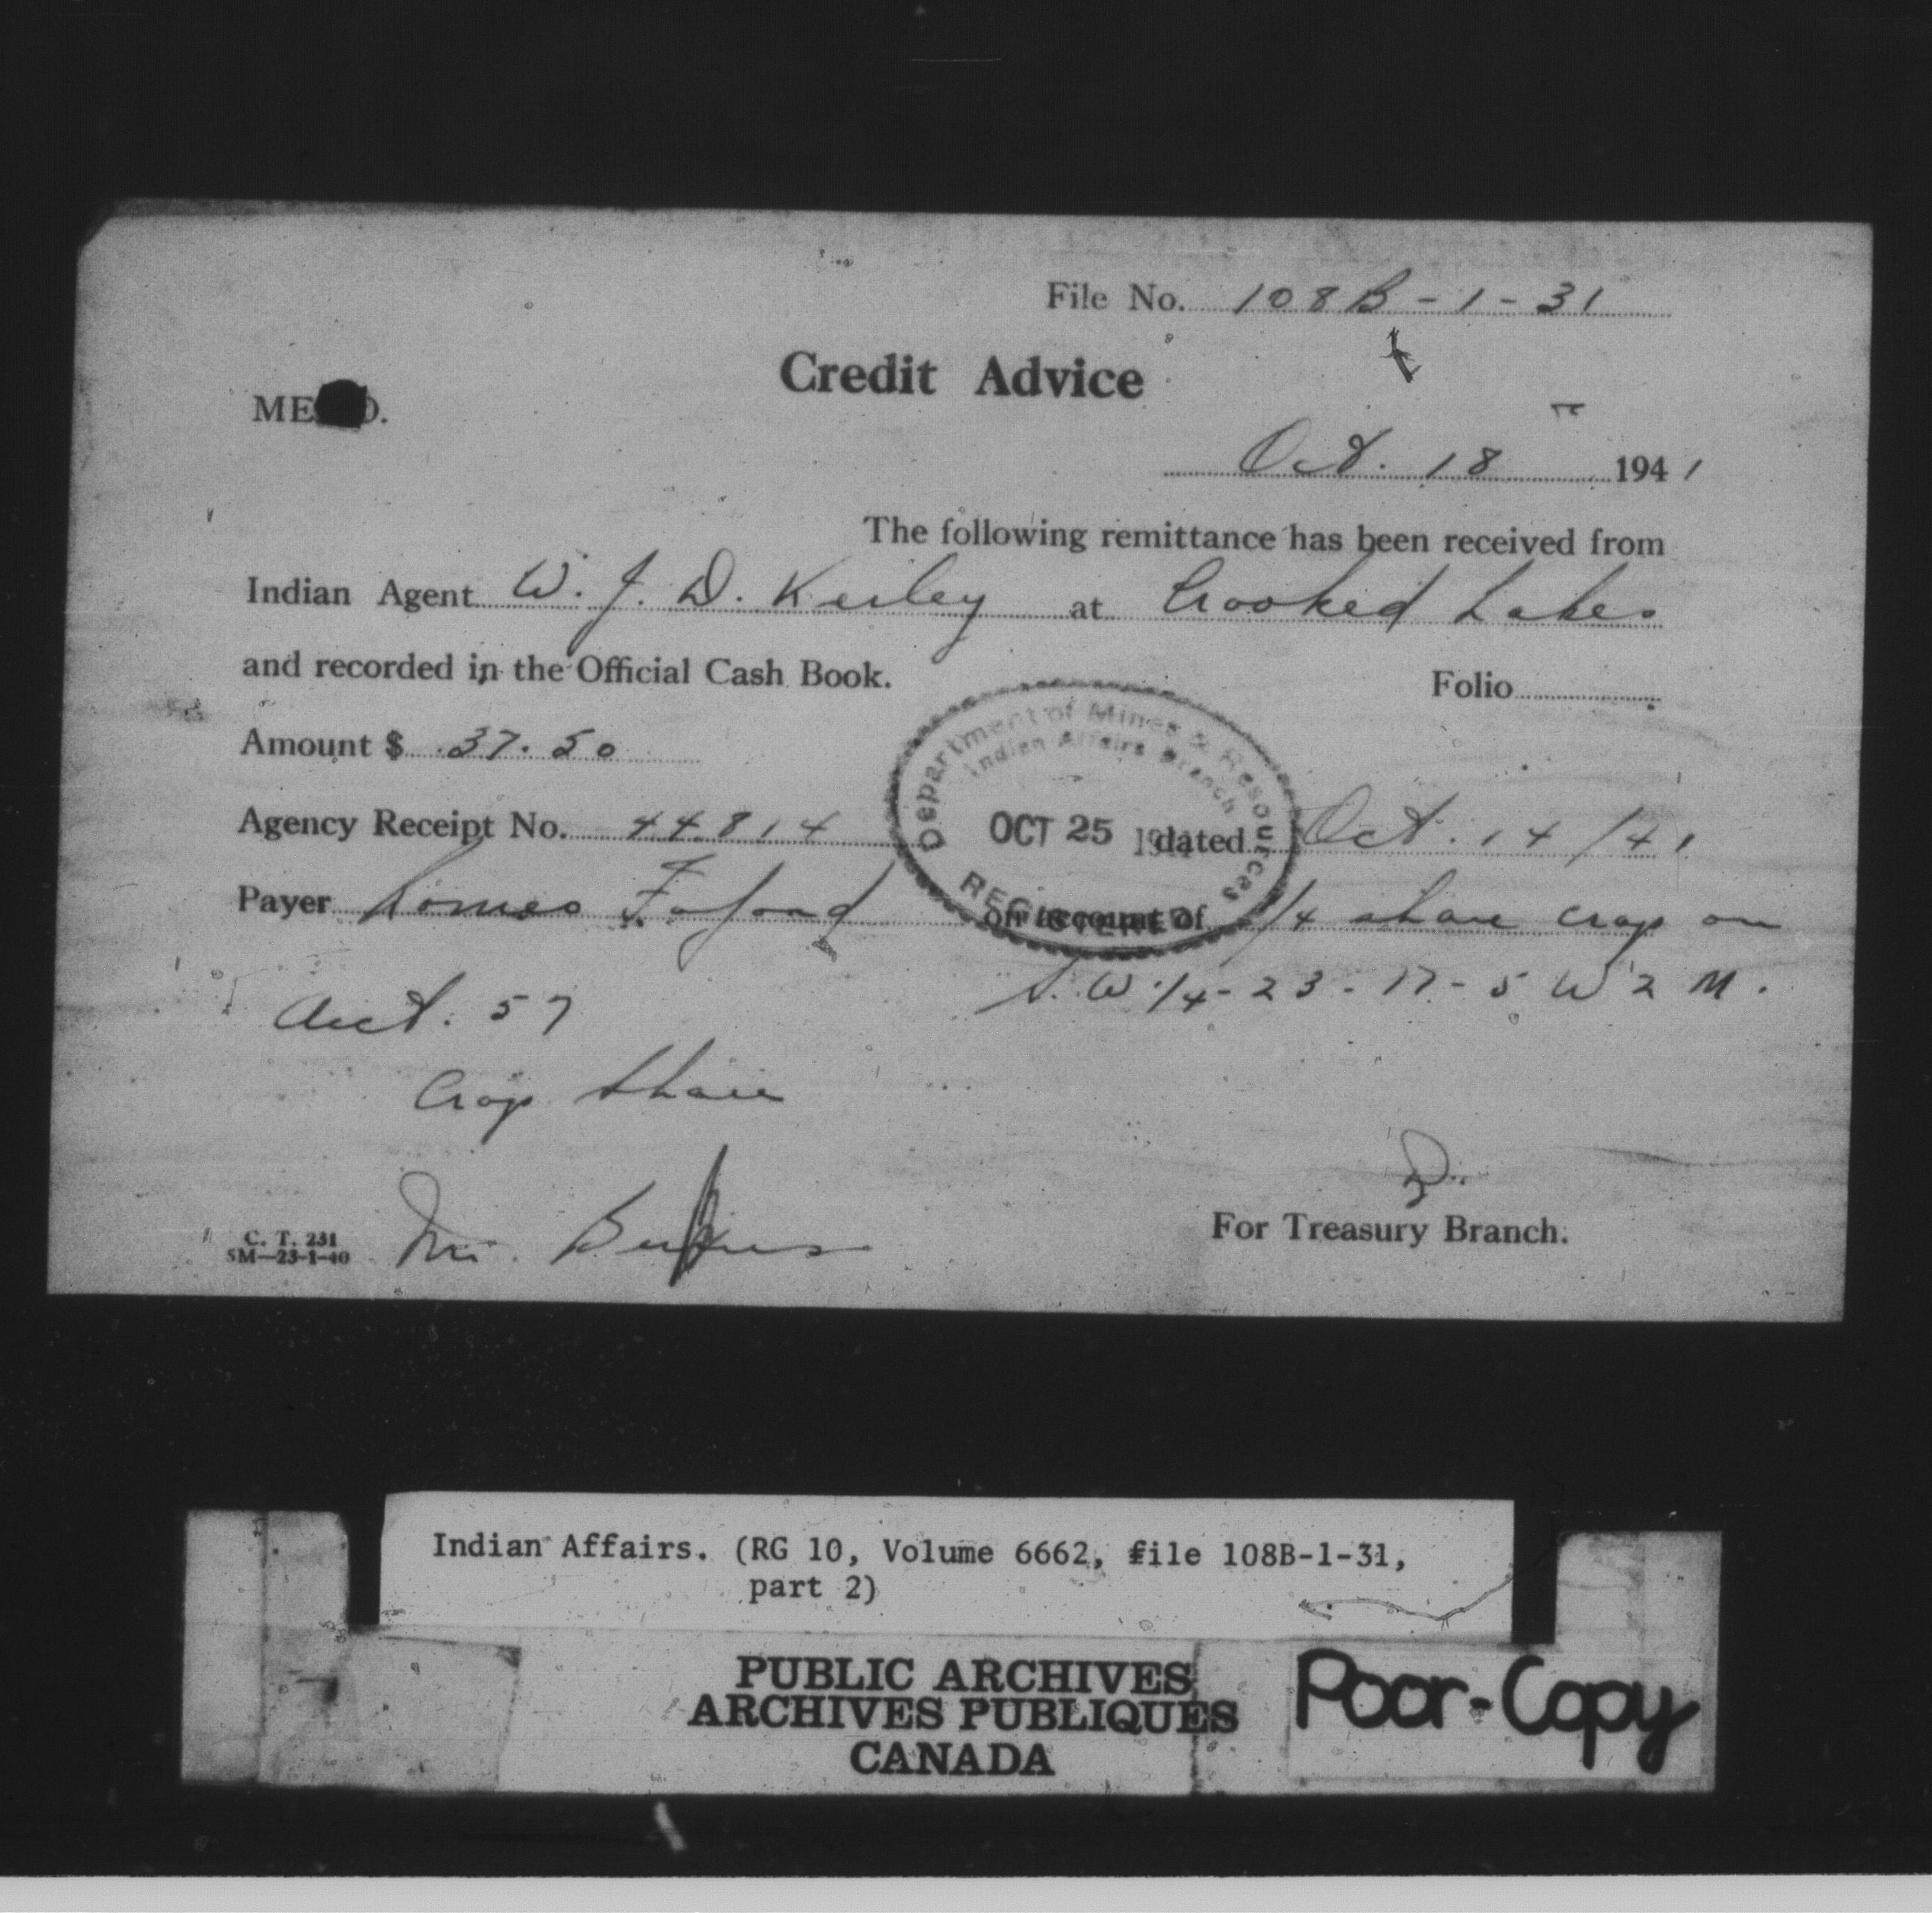 File No. 108B-1-31
Credit Advice
MEMO.
Oct. 18 1941
The following remittance has been received from
Indian Agent W. J. D. Kerley at Crooked Lakes
and recorded in the Official Cash Book. Folio
Amount $ 37.50
Department of Mines & Resources
Indian Affairs Branch
OCT 25 1941
REGISTERED
Agency Receipt No. 44814 dated Oct. 14/41
Payer on account of 1/4 share crop on
S.W. 1/4-23-17-5 W 2 M.
Acct. 57
Crop Share
For Treasury Branch.
C. T. 231
5M-23-1-40
Mr.
Indian Affairs. (RG 10, Volume 6662, file 108B-1-31,
part 2)
PUBLIC ARCHIVES
ARCHIVES PUBLIQUES
CANADA
Poor-Copy